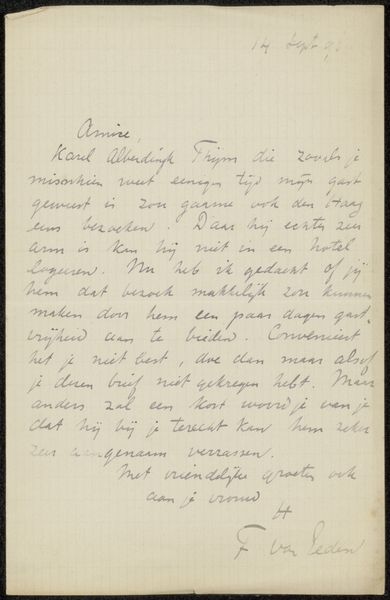 14 Sept 9
Amice,
Karel Alberdingk Thijm die zooals je
misschien weet eenigen tijd mijn gast
geweest is zou gaarne ook den Haag
eens bezoeken. Daar hij echter zeer
arm is kan hij niet in een hotel
logeeren. Nu heb ik gedacht of jij
hem dat bezoek makkelijk zou kunnen
maken door hem een paar dagen gast-
vrijheid aan te bieden. Convenieert
het je niet best, doe dan maar alsof
je dezen brief niet gekregen hebt. Maar
anders zal een kort woord je van je
dat hij bij je terecht kan hem zeker
zeer aangenaam verrassen.
Met vriendelijke groeten ook
aan je vrouw
F van Eeden